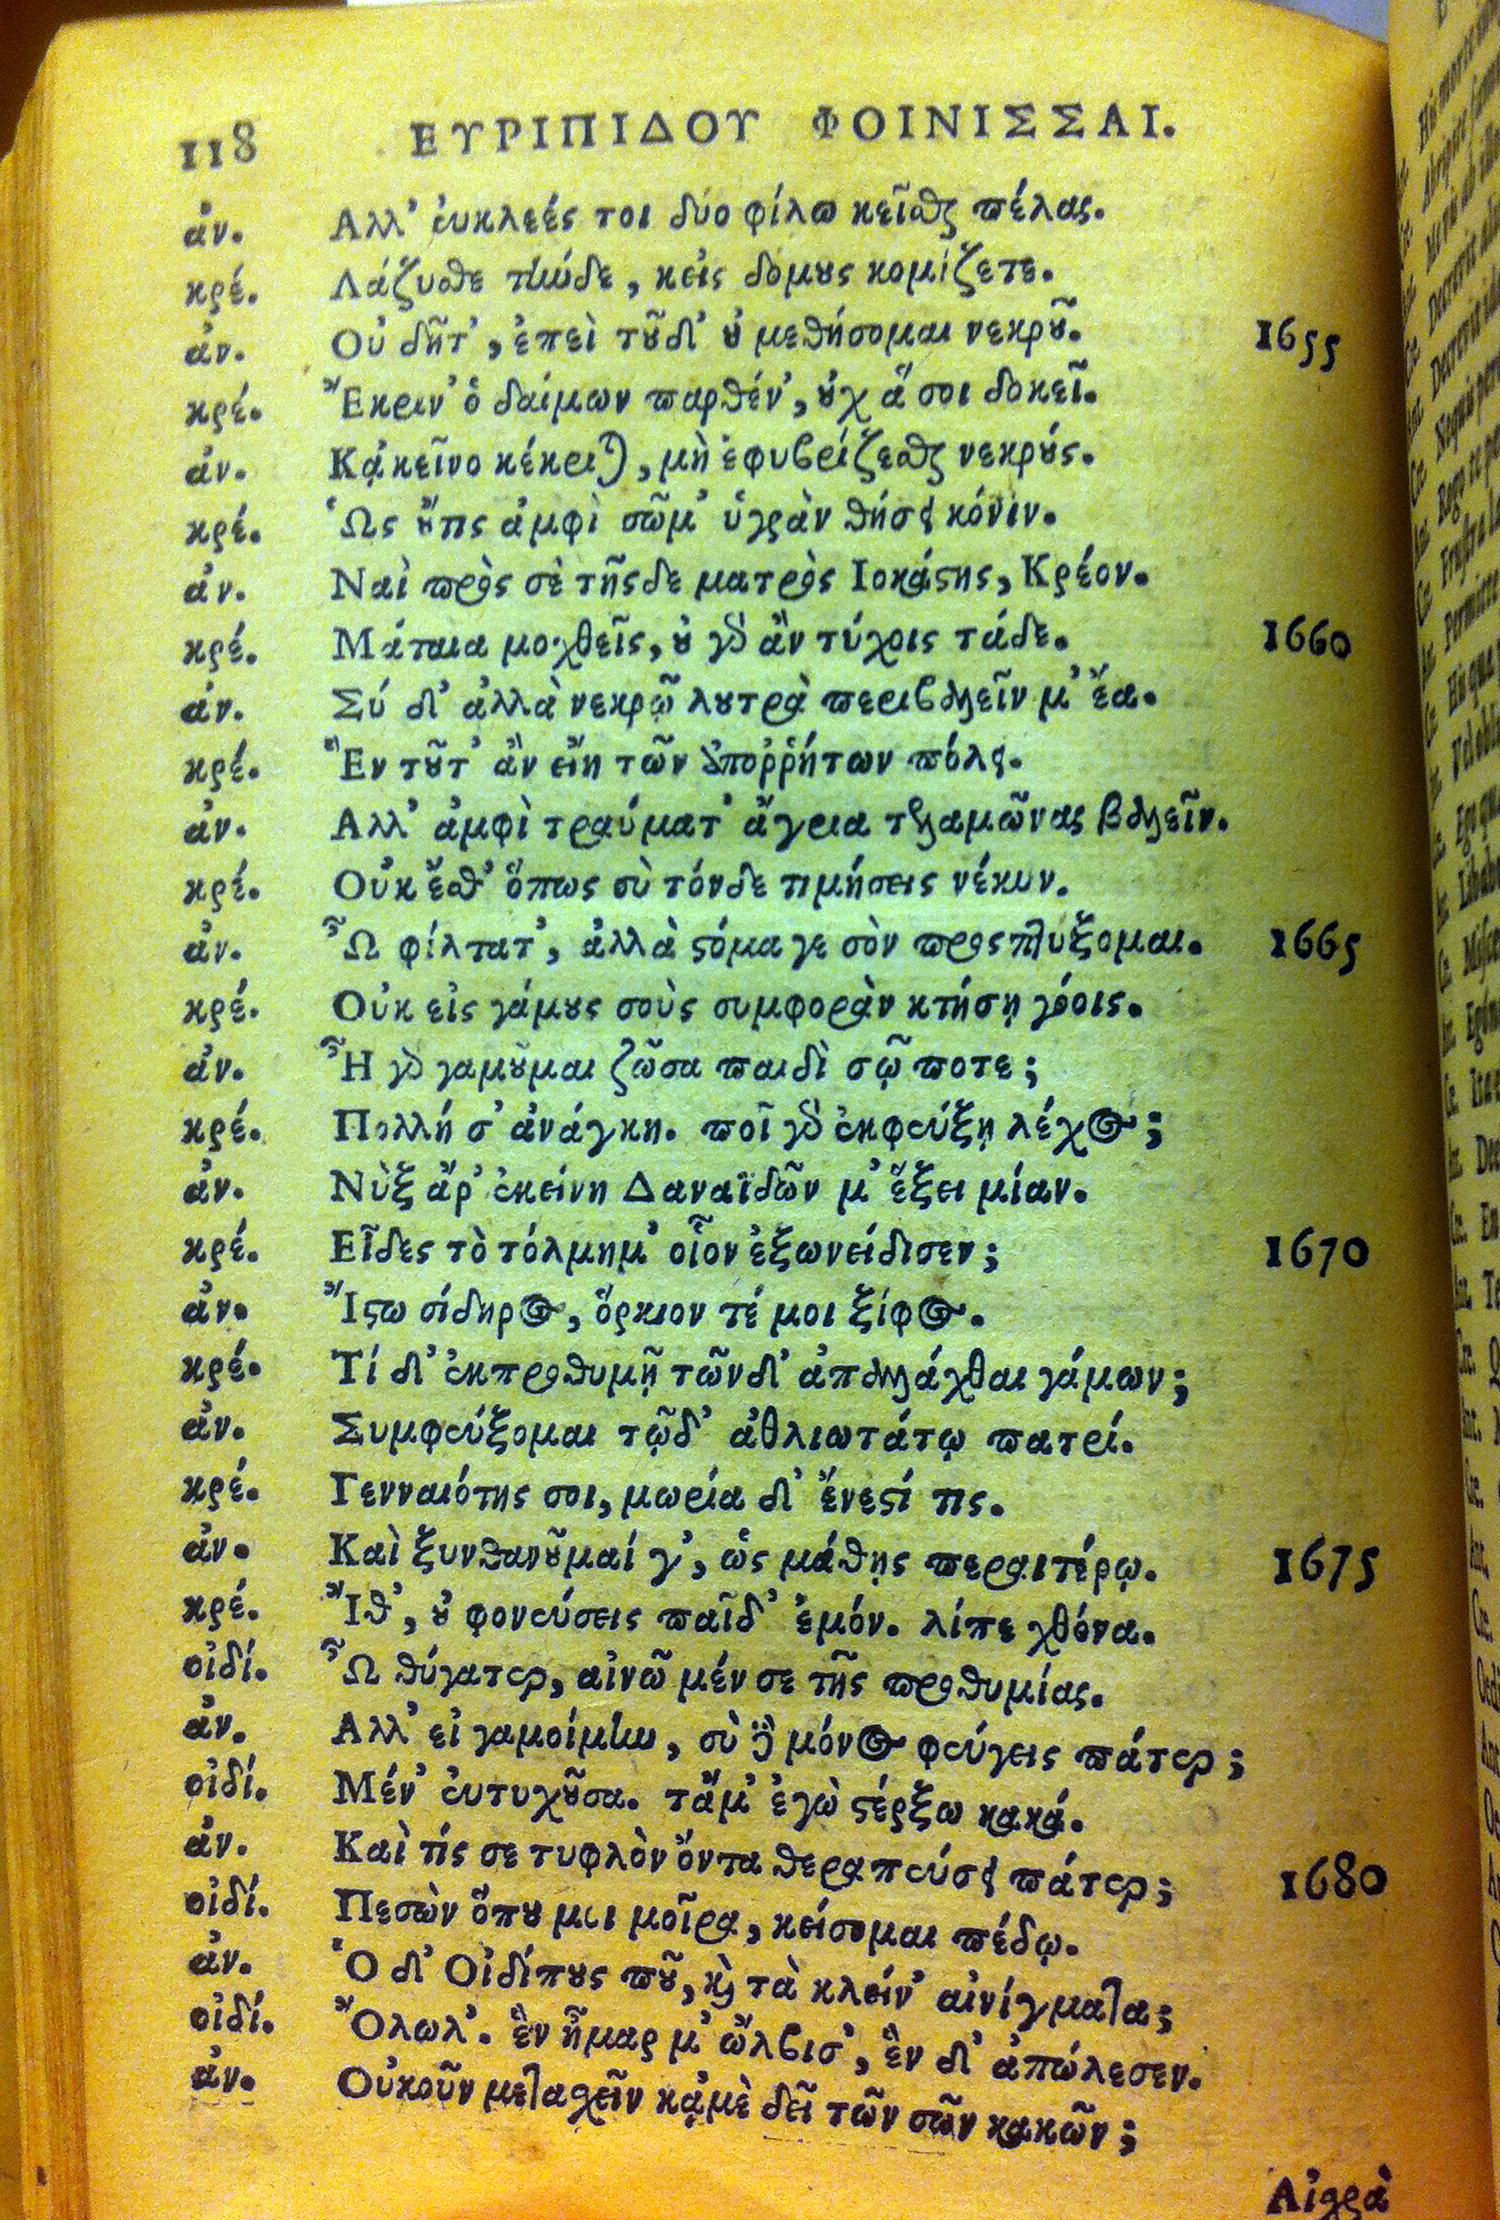 118 ΕΥΡΙΠΙΔΟΥ ΦΟΙΝΙΣΣΑΙ.
ἀν. Αλλ' εὐκλεές τοι δύο φίλω κεῖσθαι πέλας.
κρέ. Λάζυσθε τήνδε, κεἰς δομους κομίζετε.
ἀν. Οὐ δῆτ', ἐπεὶ τοῦδ' οὐ μεθήσομαι νεκροῦ. 1655
κρέ. Ἔκριν' ὁ δαίμων παρθέν', οὐχ ἅ σοι δοκεῖ.
ἀν. Κᾀκεῖνο κέκριται, μὴ ἐφυβρίζεσθαι νεκρούς.
κρέ. Ὡς οὔτις ἀμφὶ σῶμ' ὑγρὰν θήσει κόνιν.
ἀν. Ναὶ πρὸς σὲ τῆςδε ματρὸς Ιοκάστης, Κρέον.
κρέ. Μάταια μοχθεῖς, οὐ γὸ ἂν τύχοις τάδε. 1660
ἀν. Σύ δ' ἀλλὰ νεκρῷ λουτρὰ περιβαλεῖν μ' ἔα.
κρέ. Ἓν τοῦτ' ἂν εἴη τῶν ἀποῤῥήτων πόλει.
ἀν. Αλλ' ἀμφὶ τραύματ' ἄγρια τελαμῶνας βαλεῖν.
κρέ. Οὐκ ἔσθ' ὅπως σὺ τόνδε τιμήσεις νέκυν.
ἀν. Ὦ φίλτατ', ἀλλὰ στόμα γε σὸν προςπτύξομαι. 1665
κρέ. Οὐκ εἰς γάμους σοὺς συμφορὰν κτήσῃ γόοις.
ἀν. Ἦ γὸ γαμοῦμαι ζῶσα παιδὶ σῷ ποτε;
κρέ. Πολλή σ' ἀνάγκη. ποῖ γὸ ἐκφεύξῃ λέχος;
ἀν. Νὺξ ἄρ' ἐκείνη Δαναϊδῶν μ' ἕξει μίαν.
κρέ. Εἶδες τὸ τόλμημ' οἷον ἐξωνείδισεν; 1670
ἀν. Ἴστω σίδηρος, ὅρκιον τέ μοι ξίφος.
κρέ. Τί δ' ἐκπροθυμῇ τῶνδ' ἀπαλλάχθαι γάμων;
ἀν. Συμφεύξομαι τῷδ' ἀθλιωτάτῳ πατρί.
κρέ. Γενναιότης σοι, μωρία δ' ἔνεστί τις.
ἀν. Καὶ ξυνθανοῦμαί γ', ὡς μάθῃς περαιτέρω. 1675
κρέ. Ἴθ', οὐ φονεύσεις παῖδ' ἐμόν. λίπε χθόνα.
οἰδί. Ὦ θύγατερ, αἰνῶ μέν σε τῆς προθυμίας.
ἀν. Αλλ' εἰ γαμοίμην, σὺ δὲ μόνος φεύγεις πάτερ;
οἰδί. Μέν' εὐτυχοῦσα. τἄμ' ἐγὼ στέρξω κακά.
ἀν. Καὶ τίς σε τυφλὸν ὄντα θεραπεύσει πάτερ; 1680
οἰδί. Πεσὼν ὅπου μοι μοῖρα, κείσομαι πέδῳ.
ἀν. Ὁ δ' Οἰδίπους ποῦ, καὶ τὰ κλείν' αἰνίγματα;
οἰδί. Ὄλωλ'. ἓν ἦμαρ μ' ὤλβισ', ἓν δ' ἀπώλεσεν.
ἀν. Οὐκοῦν μετασχεῖν κᾀμὲ δεῖ τῶν σῶν κακῶν;
Αἰσχρὰ